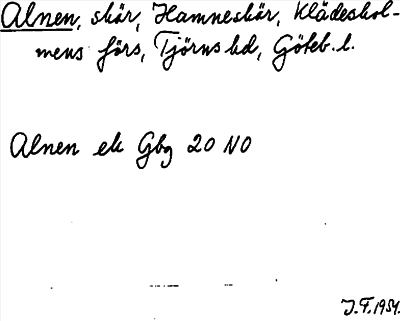 Alnen, skär, Hamneskär, Klädeshol-
mens förs, Tjörns hd, Göteb. l.
Alnen ek Gbg 20 NO
J. F. 1954.